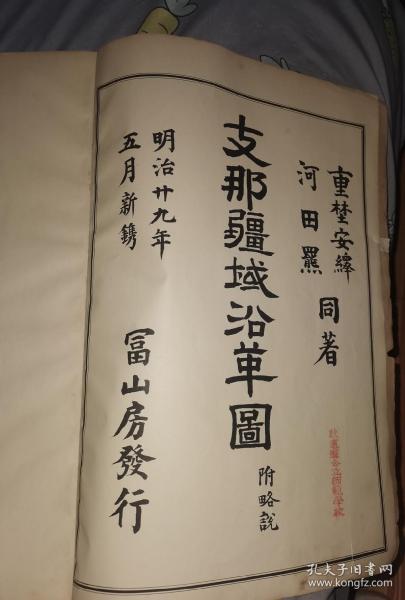 重埜安繹
河田羆
同著
支那疆域沿革圖
附略説
明治廿九年
五月新鐫
冨山房發行
孔夫子旧书网
book.kongfz.com